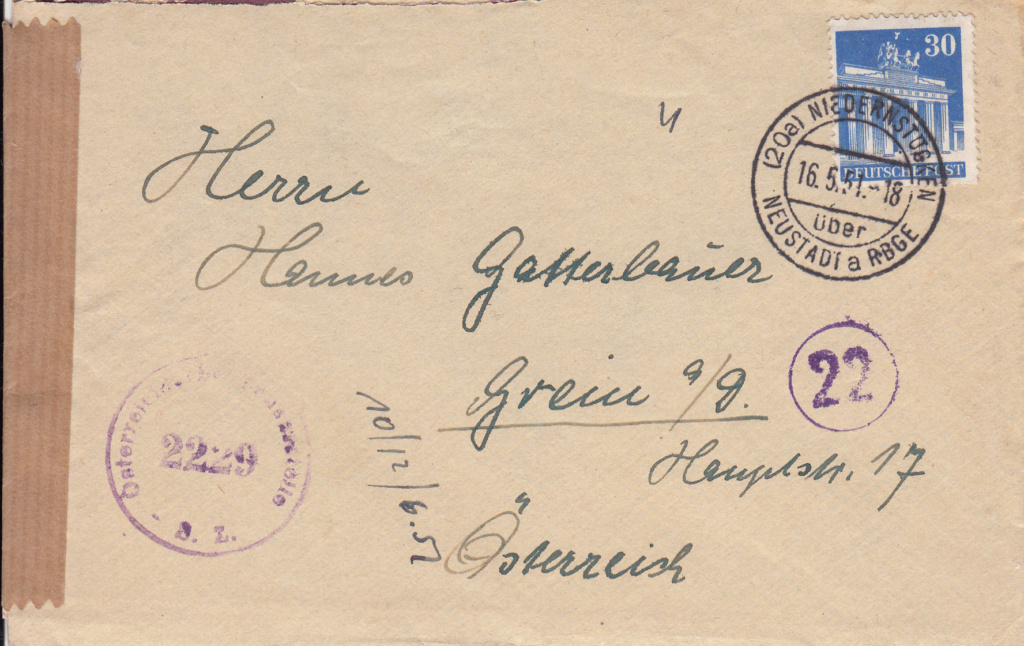 30
DEUTSCHE POST
(20a) NIEDERNSTÖCKEN
16.5.51.-18
über
NEUSTADT a RBGE
Herrn
Hannes Gatterbauer
Grein a/D.
22
Hauptstr. 17
Österreich
Österreichische Zensurstelle
2229
S. Z.